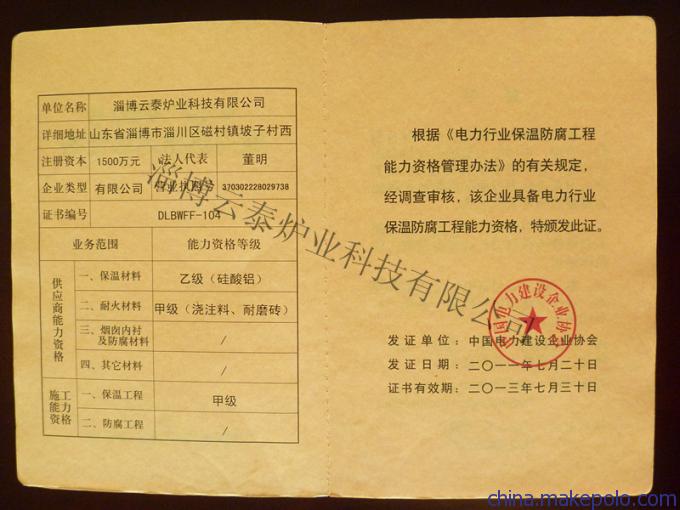 单位名称 淄博云泰炉业科技有限公司
详细地址 山东省淄博市淄川区磁村镇坡子村西
注册资本 1500万元 法人代表 董明
企业类型 有限公司 营业执照 370302228029738
证书编号 DLBWFF-104
业务范围 能力资格等级
供应商能力资格
一、保温材料 乙级（硅酸铝）
二、耐火材料 甲级（浇注料、耐磨砖）
三、烟囱内衬及防腐材料 /
四、其它材料 /
施工能力资格
一、保温工程 甲级
二、防腐工程 /
根据《电力行业保温防腐工程
能力资格管理办法》的有关规定，
经调查审核，该企业具备电力行业
保温防腐工程能力资格，特颁发此证。
发证单位：中国电力建设企业协会
发证日期：二〇一一年七月二十日
证书有效期：二〇一三年七月三十日
中国电力建设企业协会
淄博云泰炉业科技有限公司
china.makepolo.com